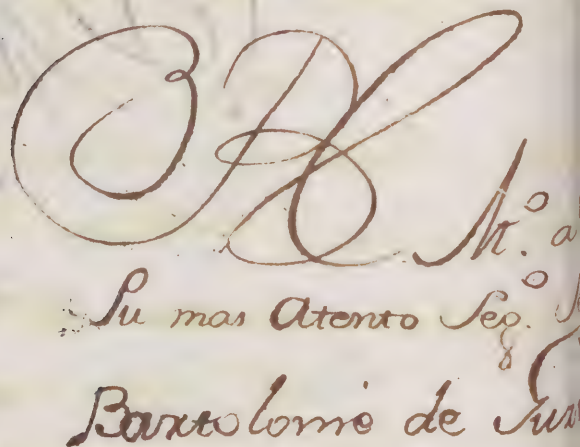 B L M.º a
Su mas Atento Seg.º
Bartolomé de